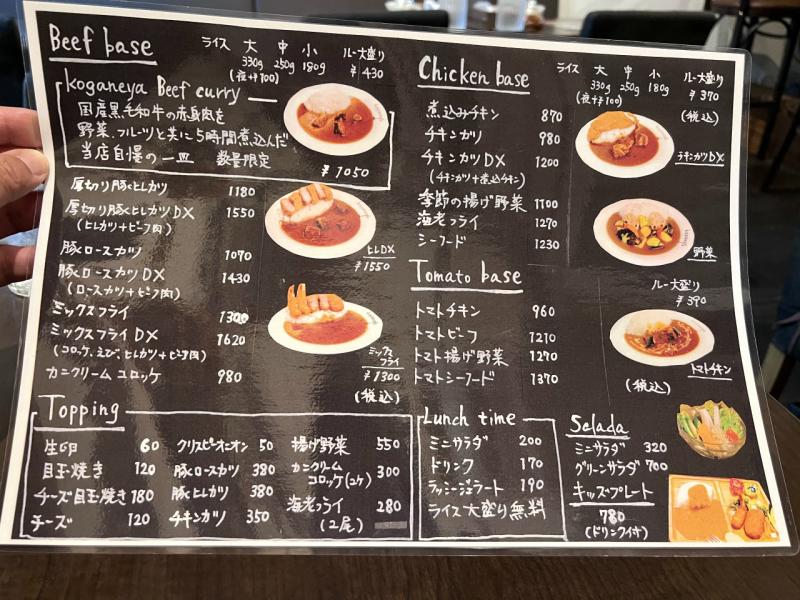 Beef base
ライス 大 中 小 ルー大盛り
330g 250g 180g ¥430
(夜+¥100)
koganeya Beef curry
国産黒毛和牛の赤身肉を
野菜、フルーツと共に5時間煮込んだ
当店自慢の一皿 数量限定
¥1050
厚切り豚ヒレカツ 1180
厚切り豚ヒレカツDX 1550
(ヒレカツ+ビーフ肉)
ヒレDX
¥1550
豚ロースカツ 1070
豚ロースカツDX 1430
(ロースカツ+ビーフ肉)
ミックスフライ 1300
ミックスフライDX 1620
(コロッケ、えび、ヒレカツ+ビーフ肉)
カニクリームコロッケ 980
ミックスフライ
¥1300
(税込)
Chicken base
ライス 大 中 小 ルー大盛り
330g 250g 180g ¥370
(夜+¥100)
(税込)
煮込みチキン 870
チキンカツ 980
チキンカツDX 1200
(チキンカツ+煮込チキン)
季節の揚げ野菜 1100
海老フライ 1270
シーフード 1230
チキンカツDX
野菜
Tomato base
ルー大盛り
¥390
トマトチキン 960
トマトビーフ 1210
トマト揚げ野菜 1270
トマトシーフード 1370
トマトチキン
(税込)
Topping
生卵 60 クリスピーオニオン 50 揚げ野菜 550
目玉焼き 120 豚ロースカツ 380 カニクリーム
コロッケ(2ケ) 300
チーズ目玉焼き 180 豚ヒレカツ 380 海老フライ 280
(2尾)
チーズ 120 チキンカツ 350
Lunch time
ミニサラダ 200
ドリンク 170
ラッシージェラート 190
ライス大盛り無料
Salada
ミニサラダ 320
グリーンサラダ 700
キッズプレート
780
(ドリンク付)